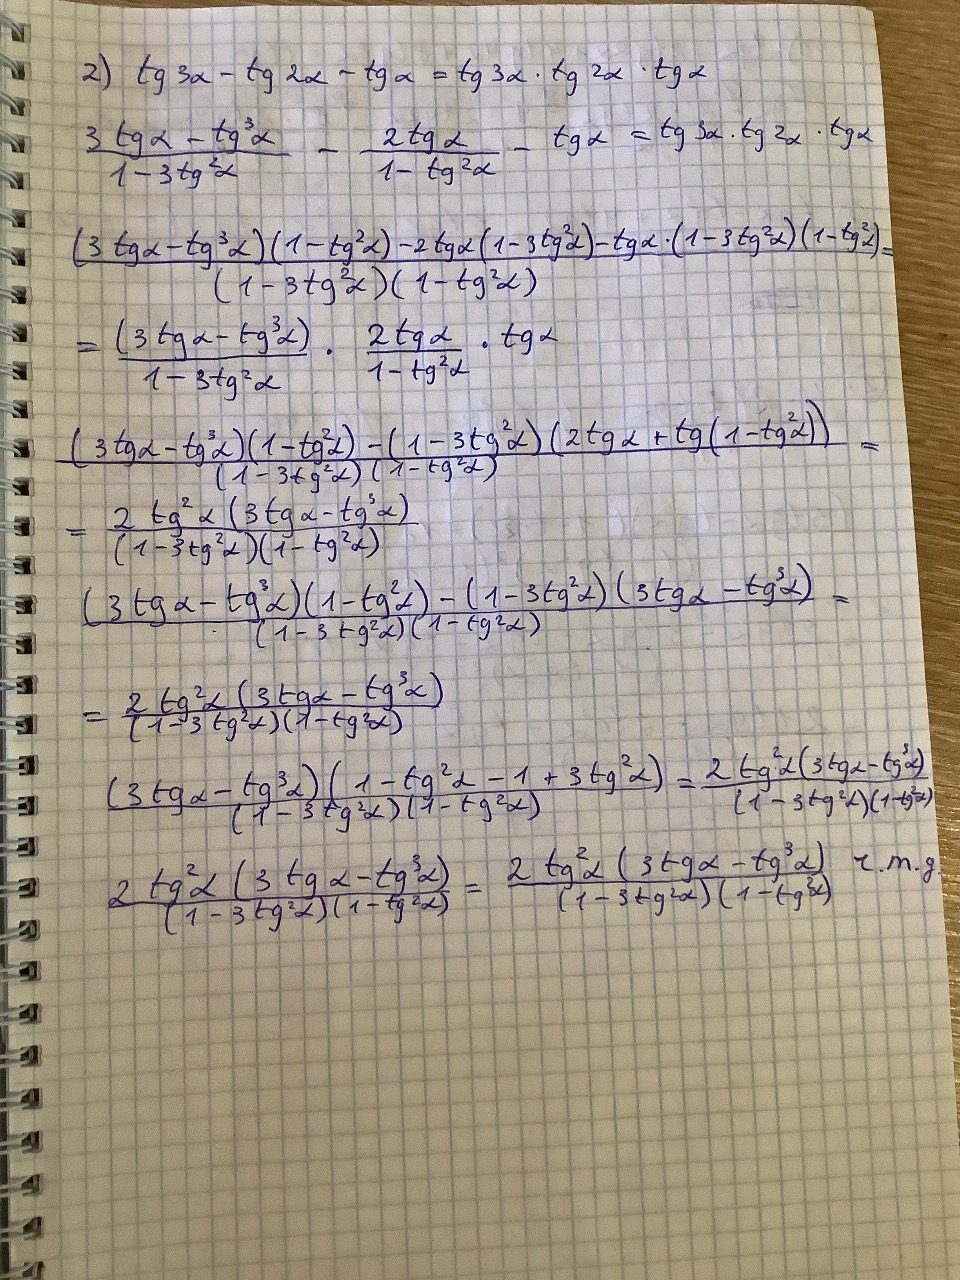 2) tg 3α - tg 2α - tg α = tg 3α · tg 2α · tg α
(3 tg α - tg³α)/(1 - 3tg²α) - (2 tg α)/(1 - tg²α) - tg α = tg 3α · tg 2α · tg α
((3 tg α - tg³α)(1 - tg²α) - 2 tg α(1 - 3tg²α) - tg α · (1 - 3tg²α)(1 - tg²α))/((1 - 3tg²α)(1 - tg²α)) =
= (3 tg α - tg³α)/(1 - 3tg²α) · (2 tg α)/(1 - tg²α) · tg α
((3 tg α - tg³α)(1 - tg²α) - (1 - 3tg²α)(2 tg α + tg(1 - tg²α)))/((1 - 3tg²α)(1 - tg²α)) =
= (2 tg²α (3 tg α - tg³α))/((1 - 3tg²α)(1 - tg²α))
((3 tg α - tg³α)(1 - tg²α) - (1 - 3tg²α)(3 tg α - tg³α))/((1 - 3 tg²α)(1 - tg²α)) =
= (2 tg²α (3 tg α - tg³α))/((1 - 3 tg²α)(1 - tg²α))
((3 tg α - tg³α)(1 - tg²α - 1 + 3 tg²α))/((1 - 3 tg²α)(1 - tg²α)) = (2 tg²α (3 tg α - tg³α))/((1 - 3tg²α)(1 - tg²α))
(2 tg²α (3 tg α - tg³α))/((1 - 3tg²α)(1 - tg²α)) = (2 tg²α (3 tg α - tg³α))/((1 - 3tg²α)(1 - tg²α)) ч.т.д.